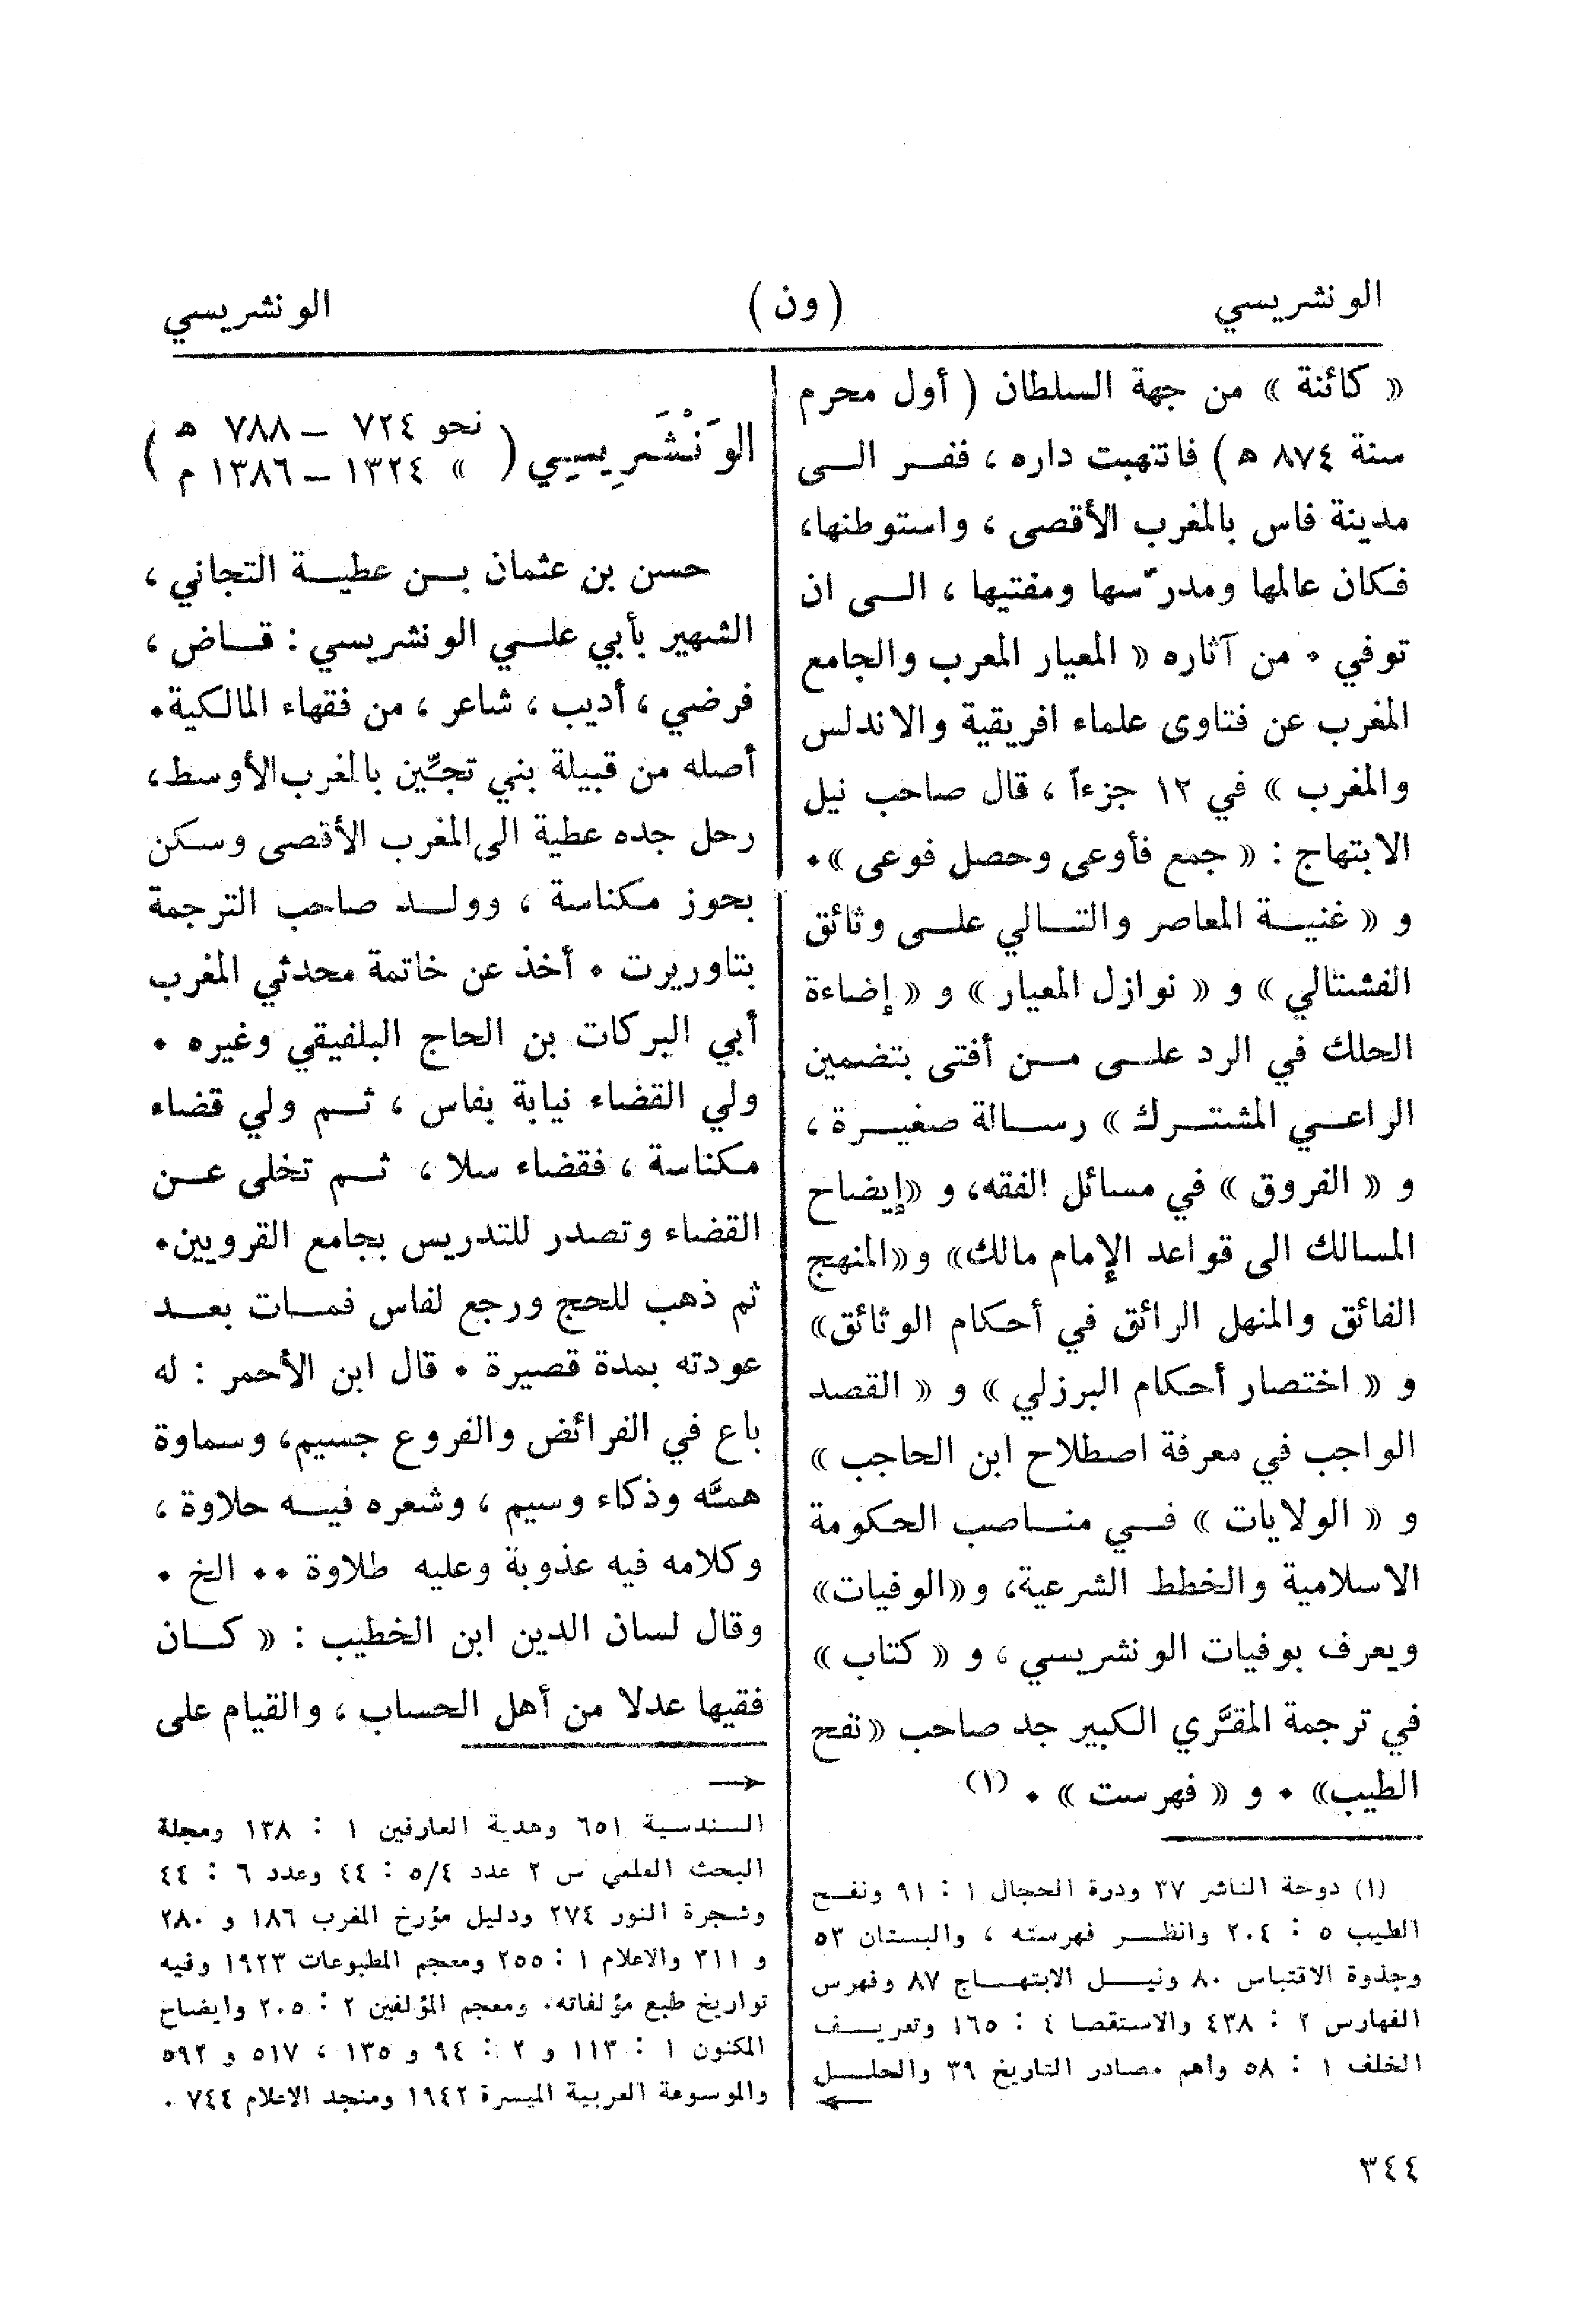 الونشريسي (ون) الونشريسي
« كائنة » من جهة السلطان ( أول محرم
سنة ٨٧٤ هـ ) فانتهبت داره ، ففر الى
مدينة فاس بالمغرب الأقصى ، واستوطنها،
فكان عالمها ومدرّسها ومفتيها ، الى ان
توفي . من آثاره « المعيار المعرب والجامع
المغرب عن فتاوى علماء افريقية والاندلس
والمغرب » في ١٢ جزءاً ، قال صاحب نيل
الابتهاج : « جمع فأوعى وحصل فوعى ».
و « غنية المعاصر والتالي على وثائق
الفشتالي » و « نوازل المعيار » و « إضاءة
الحلك في الرد على من أفتى بتضمين
الراعي المشترك » رسالة صغيرة ،
و « الفروق » في مسائل الفقه، و «إيضاح
المسالك الى قواعد الإمام مالك» و«المنهج
الفائق والمنهل الرائق في أحكام الوثائق»
و « اختصار أحكام البرزلي » و « القصد
الواجب في معرفة اصطلاح ابن الحاجب »
و « الولايات » في مناصب الحكومة
الاسلامية والخطط الشرعية، و«الوفيات»
ويعرف بوفيات الونشريسي ، و « كتاب »
في ترجمة المقَّري الكبير جد صاحب «نفح
الطيب» . و « فهرست » . (١)
(١) دوحة الناشر ٣٧ ودرة الحجال ١ : ٩١ ونفح
الطيب ٥ : ٢٠٤ وانظر فهرسته ، والبستان ٥٣
وجذوة الاقتباس ٨٠ ونيل الابتهاج ٨٧ وفهرس
الفهارس ٢ : ٤٣٨ والاستقصا ٤ : ١٦٥ وتعريف
الخلف ١ : ٥٨ وأهم مصادر التاريخ ٣٩ والحلل
الوَنْشَرِيسِي ( نحو ٧٢٤ – ٧٨٨ هـ )
» ١٣٢٤ – ١٣٨٦ م
حسن بن عثمان بن عطية التجاني ،
الشهير بأبي علي الونشريسي : قاض ،
فرضي ، أديب ، شاعر ، من فقهاء المالكية.
أصله من قبيلة بني تجّين بالمغرب الأوسط،
رحل جده عطية الى المغرب الأقصى وسكن
بحوز مكناسة ، وولد صاحب الترجمة
بتاوريرت . أخذ عن خاتمة محدثي المغرب
أبي البركات بن الحاج البلفيقي وغيره .
ولي القضاء نيابة بفاس ، ثم ولي قضاء
مكناسة ، فقضاء سلا ، ثم تخلى عن
القضاء وتصدر للتدريس بجامع القرويين.
ثم ذهب للحج ورجع لفاس فمات بعد
عودته بمدة قصيرة . قال ابن الأحمر : له
باع في الفرائض والفروع جسيم، وسماوة
همَّه وذكاء وسيم ، وشعره فيه حلاوة ،
وكلامه فيه عذوبة وعليه طلاوة .. الخ .
وقال لسان الدين ابن الخطيب : « كان
فقيها عدلا من أهل الحساب ، والقيام على
السندسية ٦٥١ وهدية العارفين ١ : ١٣٨ ومجلة
البحث العلمي س ٢ عدد ٥/٤ : ٤٤ وعدد ٦ : ٤٤
وشجرة النور ٢٧٤ ودليل مؤرخ المغرب ١٨٦ و ٢٨٠
و ٣١١ والاعلام ١ : ٢٥٥ ومعجم المطبوعات ١٩٢٣ وفيه
تواريخ طبع مؤلفاته. ومعجم المؤلفين ٢ : ٢٠٥ وايضاح
المكنون ١ : ١١٣ و ٢ : ٩٤ و ١٣٥ ، ٥١٧ و ٥٩٢
والموسوعة العربية الميسرة ١٩٤٢ ومنجد الاعلام ٧٤٤ .
٣٤٤